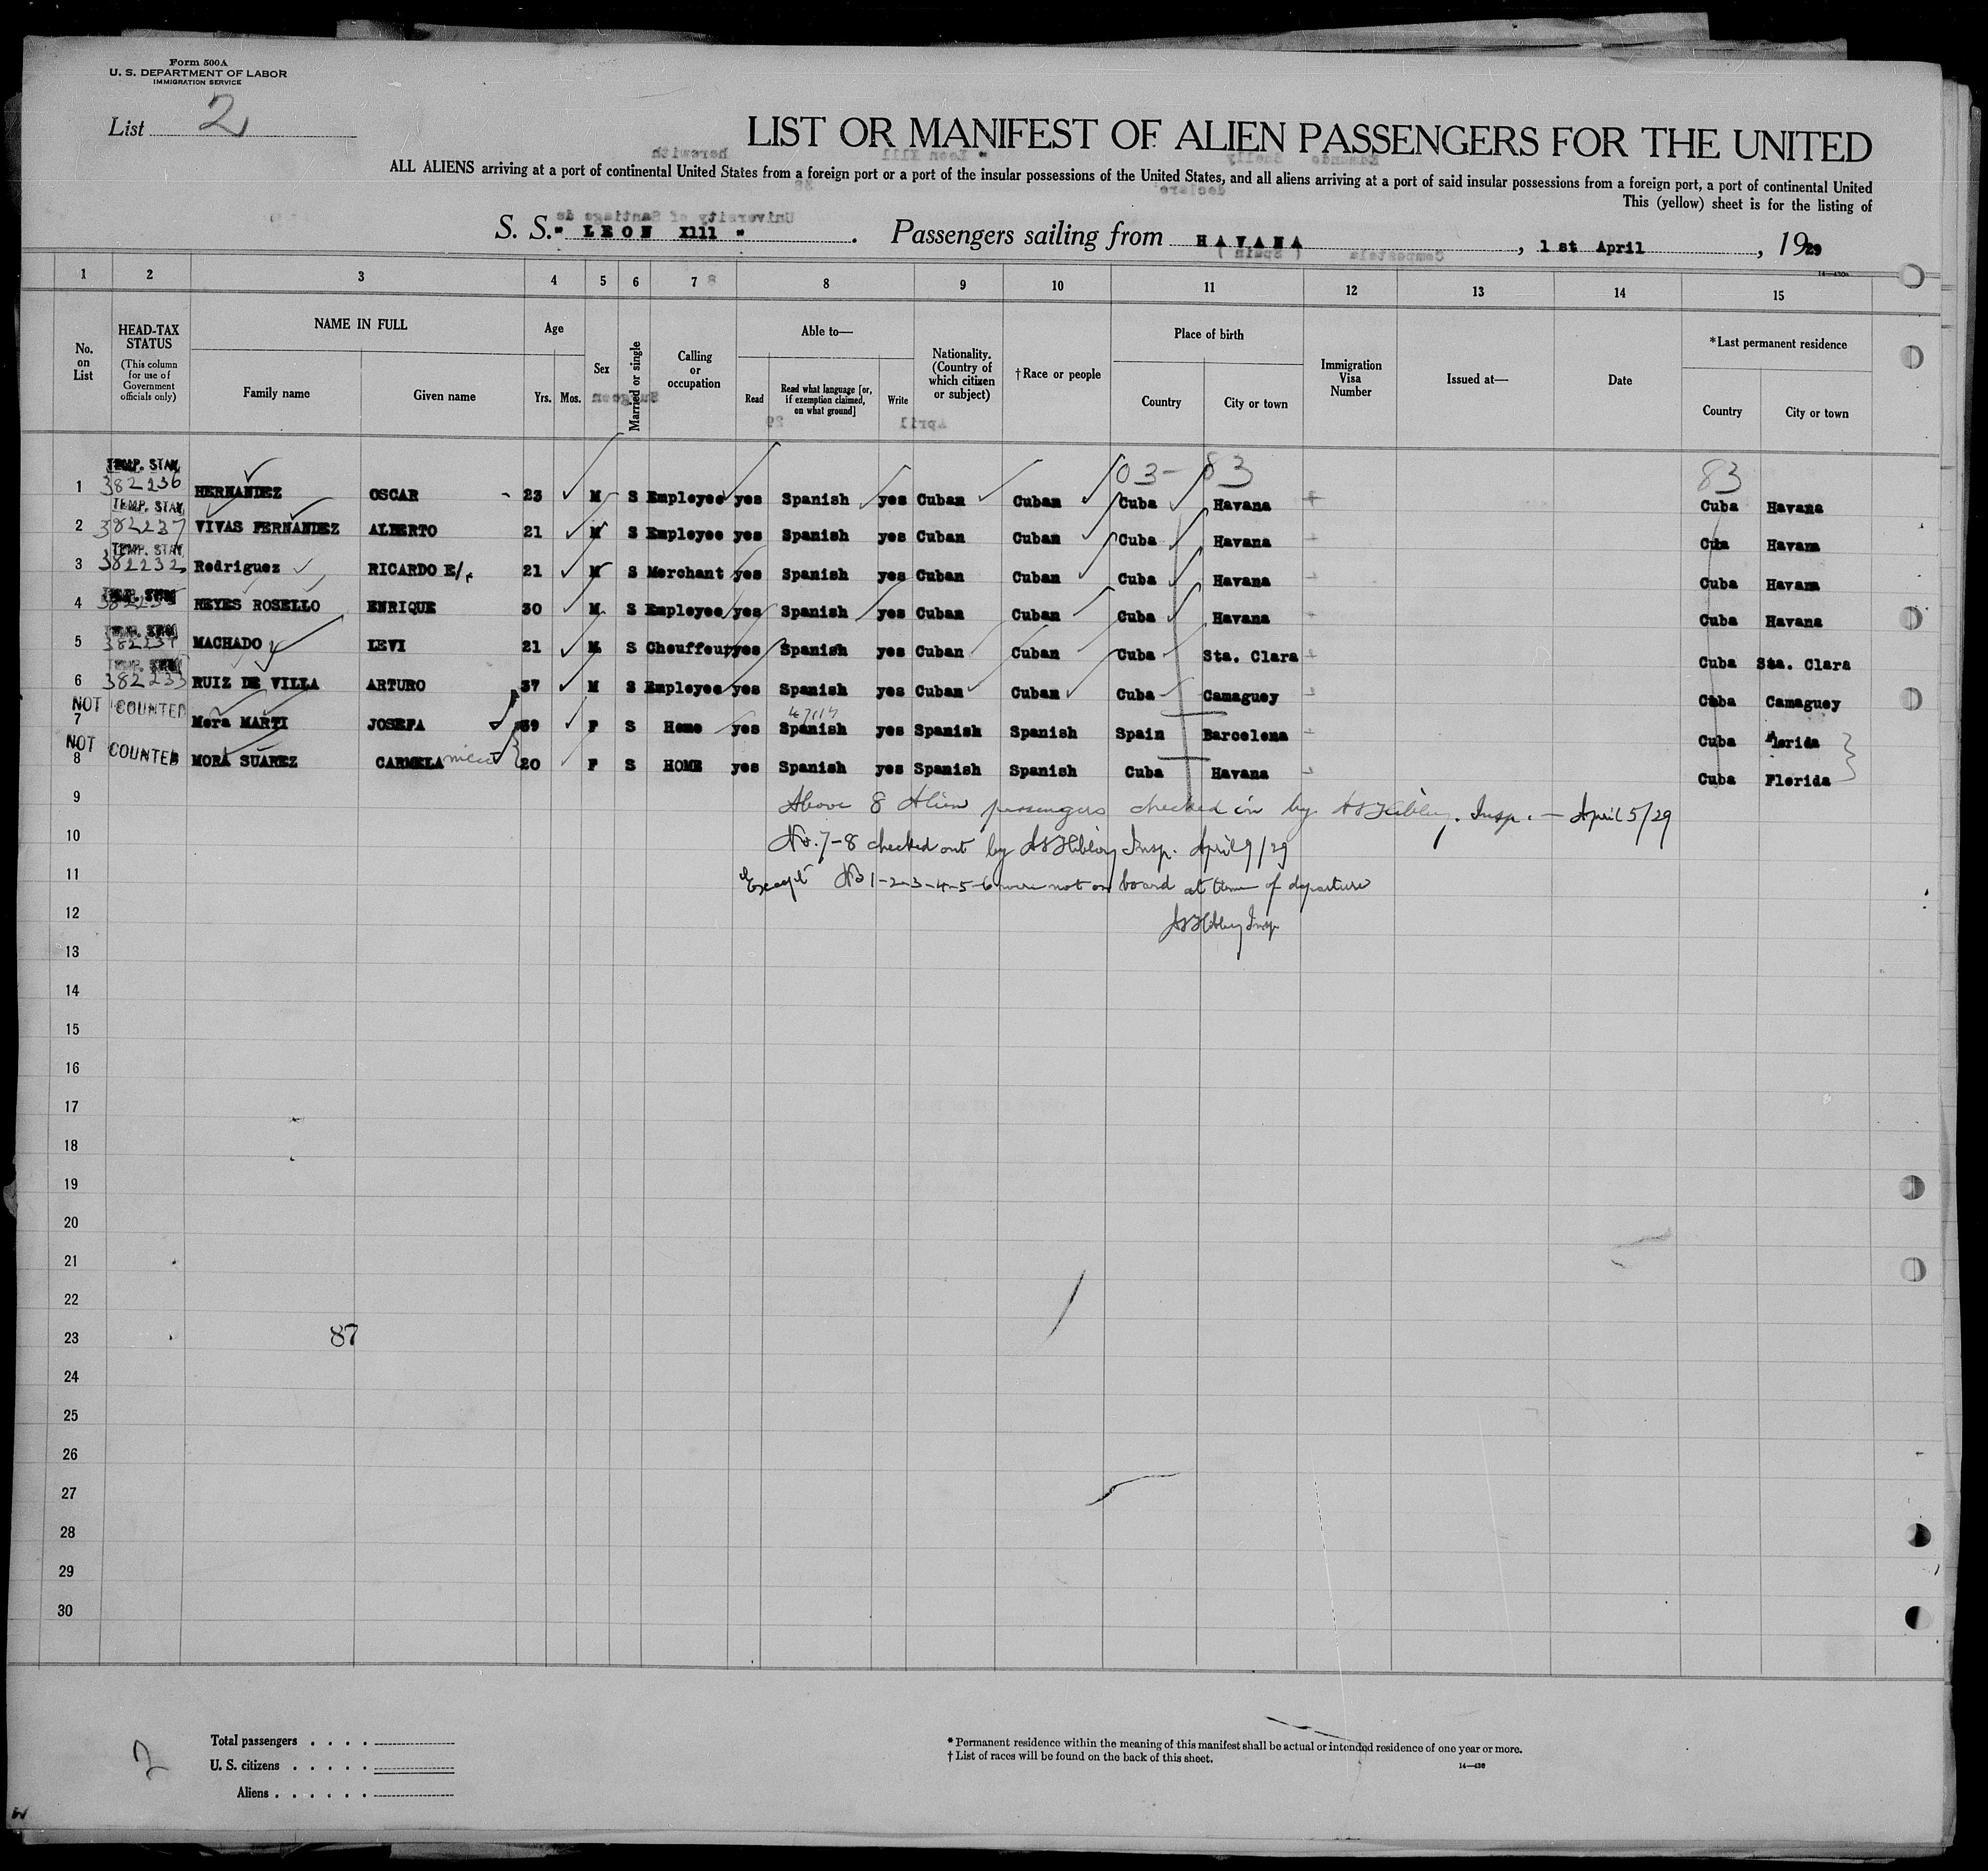 Form 500A
U. S. DEPARTMENT OF LABOR
IMMIGRATION SERVICE
List 2
LIST OR MANIFEST OF ALIEN PASSENGERS FOR THE UNITED
ALL ALIENS arriving at a port of continental United States from a foreign port or a port of the insular possessions of the United States, and all aliens arriving at a port of said insular possessions from a foreign port, a port of continental United
This (yellow) sheet is for the listing of
S. S. " LEON XIII " . Passengers sailing from HAVANA , 1 st April , 1929
14—430a
1 2 3 4 5 6 7 8 9 10 11 12 13 14 15
No. on List
HEAD-TAX STATUS
(This column for use of Government officials only)
NAME IN FULL
Family name Given name
Age
Yrs. Mos.
Sex
Married or single
Calling or occupation
Able to—
Read
Read what language [or, if exemption claimed, on what ground]
Write
Nationality. (Country of which citizen or subject)
†Race or people
Place of birth
Country City or town
Immigration Visa Number
Issued at—
Date
*Last permanent residence
Country City or town
03- 83 83
TEMP. STAY
1 382236 HERNANDEZ OSCAR 23 M S Employee yes Spanish yes Cuban Cuban Cuba Havana Cuba Havana
TEMP. STAY
2 382237 VIVAS FERNANDEZ ALBERTO 21 M S Employee yes Spanish yes Cuban Cuban Cuba Havana Cuba Havana
TEMP. STAY
3 382232 Rodriguez RICARDO E/. 21 M S Merchant yes Spanish yes Cuban Cuban Cuba Havana Cuba Havana
4 REYES ROSELLO ENRIQUE 30 M S Employee yes Spanish yes Cuban Cuban Cuba Havana Cuba Havana
5 MACHADO y LEVI 21 M S Chouffeur yes Spanish yes Cuban Cuban Cuba Sta. Clara Cuba Sta. Clara
6 382233 RUIZ DE VILLA ARTURO 37 M S Employee yes Spanish yes Cuban Cuban Cuba Camaguey Cuba Camaguey
NOT COUNTED
7 Mora MARTI JOSEFA 39 F S Home yes Spanish yes Spanish Spanish Spain Barcelona Cuba Florida
NOT COUNTED
8 MORA SUAREZ CARMELA niece 20 F S HOME yes Spanish yes Spanish Spanish Cuba Havana Cuba Florida
9 Above 8 Alien passengers checked in by Insp. — April 5/29
10 No. 7-8 checked out by Insp. April 9/29
11 Except No 1-2-3-4-5-6 were not on board at time of departure
12 Insp
13
14
15
16
17
18
19
20
21
22
23 87
24
25
26
27
28
29
30
Total passengers . . . .
U. S. citizens . . . . .
Aliens . . . . . .
2
* Permanent residence within the meaning of this manifest shall be actual or intended residence of one year or more.
† List of races will be found on the back of this sheet.
14—430